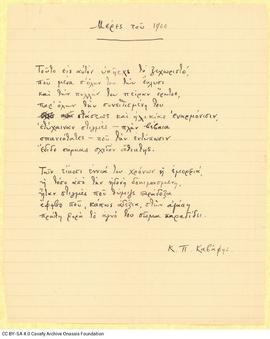 Μέρες τοῦ 1901
Τοῦτο εἰς αὐτὸν ὑπῆρχε τὸ ξεχωριστό,
ποὺ μέσα σ' ὅλην του τὴν ἔκλυσι
καὶ τὴν πολλήν του πεῖραν ἔρωτος,
παρ' ὅλην τὴν συνειθισμένη του
στάσεως καὶ ἡλικίας ἐναρμόνισιν,
ἐτύχαιναν στιγμὲς — πλὴν βέβαια
σπανιότατες — ποὺ τὴν ἐντύπωσιν
ἔδιδε σάρκας σχεδὸν ἄθικτης.
Τῶν εἴκοσι ἐννιά του χρόνων ἡ ἐμορφιά,
ἡ τόσο ἀπὸ τὴν ἡδονὴ δοκιμασμένη,
ἦταν στιγμὲς ποὺ θύμιζε παράδοξα
ἔφηβο ποὺ, κάπως ἀδέξια, στὴν ἀγάπη
πρώτη φορὰ τὸ ἁγνό του σῶμα παραδίδει.
Κ. Π. Καβάφης
CC BY-SA 4.0 Cavafy Archive Onassis Foundation